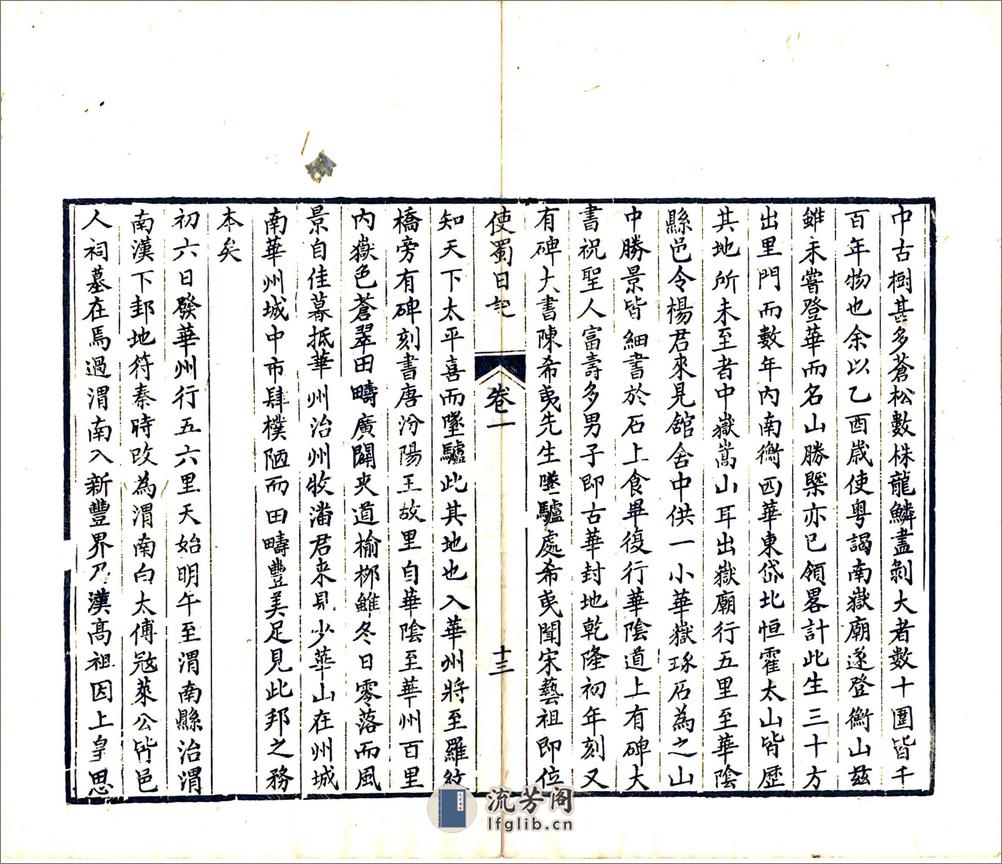 中古樹甚多蒼松數株龍鱗盡剝大者數十圍皆千
百年物也余以乙酉歲使粵謁南嶽廟遂登衡山茲
雖未嘗登華而名山勝槩亦已領畧計此生三十方
出里門而數年內南衡西華東岱北恒霍太山皆歷
其地所未至者中嶽嵩山耳出嶽廟行五里至華陰
縣邑令楊君來見舘舍中供一小華嶽琢石為之山
中勝景皆細書於石上食畢復行華陰道上有碑大
書祝聖人富壽多男子即古華封地乾隆初年刻又
有碑大書陳希夷先生墜驢處希夷聞宋藝祖即位
使蜀日記 卷一 十三
知天下太平喜而墜驢此其地也入華州將至羅紋
橋旁有碑刻書唐汾陽王故里自華陰至華州百里
內嶽色蒼翠田疇廣闊夾道榆柳雖冬日零落而風
景自佳暮抵華州治州牧潘君来見少華山在州城
南華州城中市肆樸陋而田疇豐美足見此邦之務
本矣
初六日發華州行五六里天始明午至渭南縣治渭
南漢下邽地符秦時改為渭南白太傅寇萊公皆邑
人祠墓在焉過渭南入新豐界乃漢高祖因上皇思
流芳阁
lfglib.cn